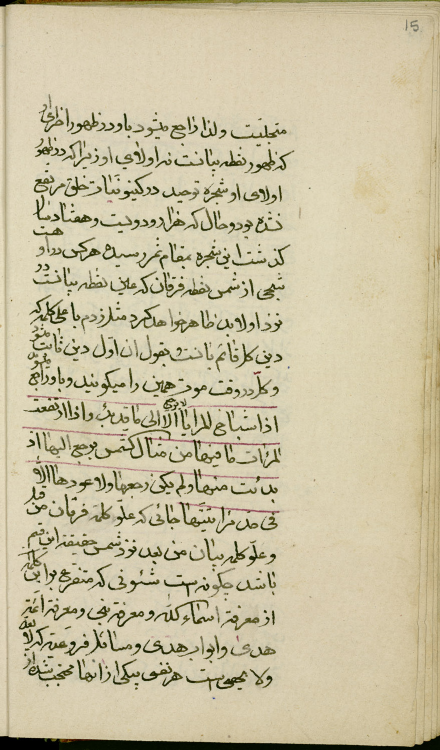 15
متجلیست و لذا راجع میشود باو در ظهور اخرای او
که ظهور نقطه بیانست نه اولای او زیرا که در ظهور
اولای او شجره توحید در کینونیات خلق مرتفع
نشده بود و حال که هزار و دویست و هفتاد سال
گذشت این شجره بمقام ثمر رسیده هر کس در او
شبحی از شمس نقطه فرقان که عین نقطه بیانست
بود او لابد ظاهر خواهد کرد مثل زدم باعلی کلمه که
دین کل قائم بانست و بقول ان اول دین ثابت میشود
و کل در وقت موت همین را میگویند و باو راجع
اذ اشباح المرایا لا یرجع الا الی ما قد بدئت و اذا ارتفعت
المرات ما فیها من مثال الشمس یرجع الیها اذ
بدئت منها و لم یکن رجعها ولا عودها الا
فی حد مرایتیتها جائی که علو کلمه فرقان من قبل
و علو کلمه بیان من بعد نزد شمس حقیقة این قسم
باشد چگونه است شئونی که متفرع بر این کلمه
از معرفة اسماء الله و معرفة نبی و معرفة ائمه
هدی و ابواب هدی و مسائل فروعیه که لا یعد
ولا یحصی است هر نفسی بیکی از انها محتجب شده از